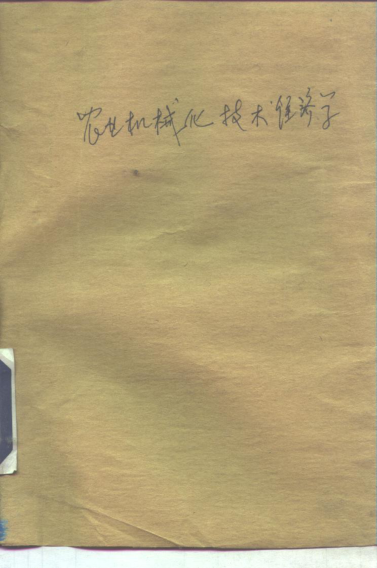 农业机械化技术经济学